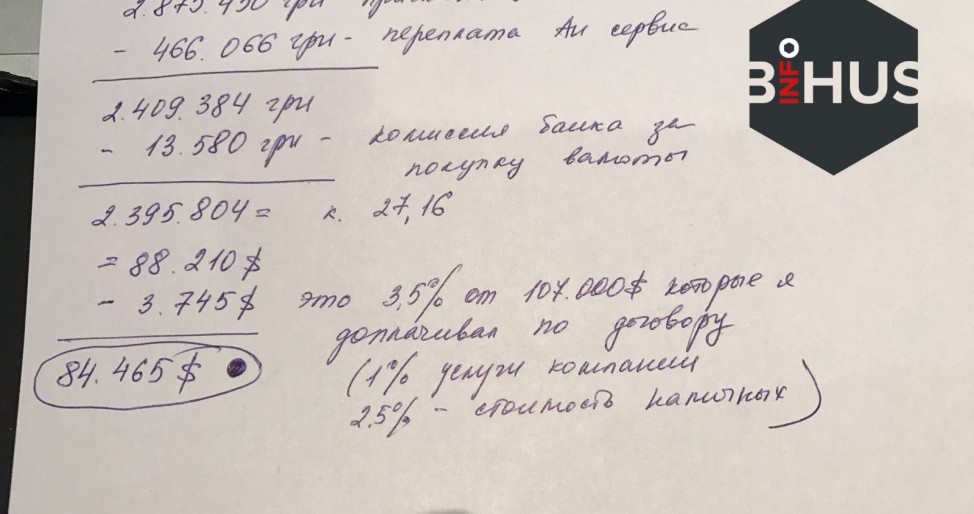 2.875.450 грн
- 466.066 грн - переплата Ай сервис
2.409.384 грн
- 13.580 грн - комиссия банка за
покупку валюты
2.395.804 = к. 27,16
= 88.210 $
- 3.745 $ это 3,5% от 107.000$ которые я
доплачивал по договору
84.465 $ (1% услуги компании
2,5% - стоимость наличных)
BIHUS
INFO